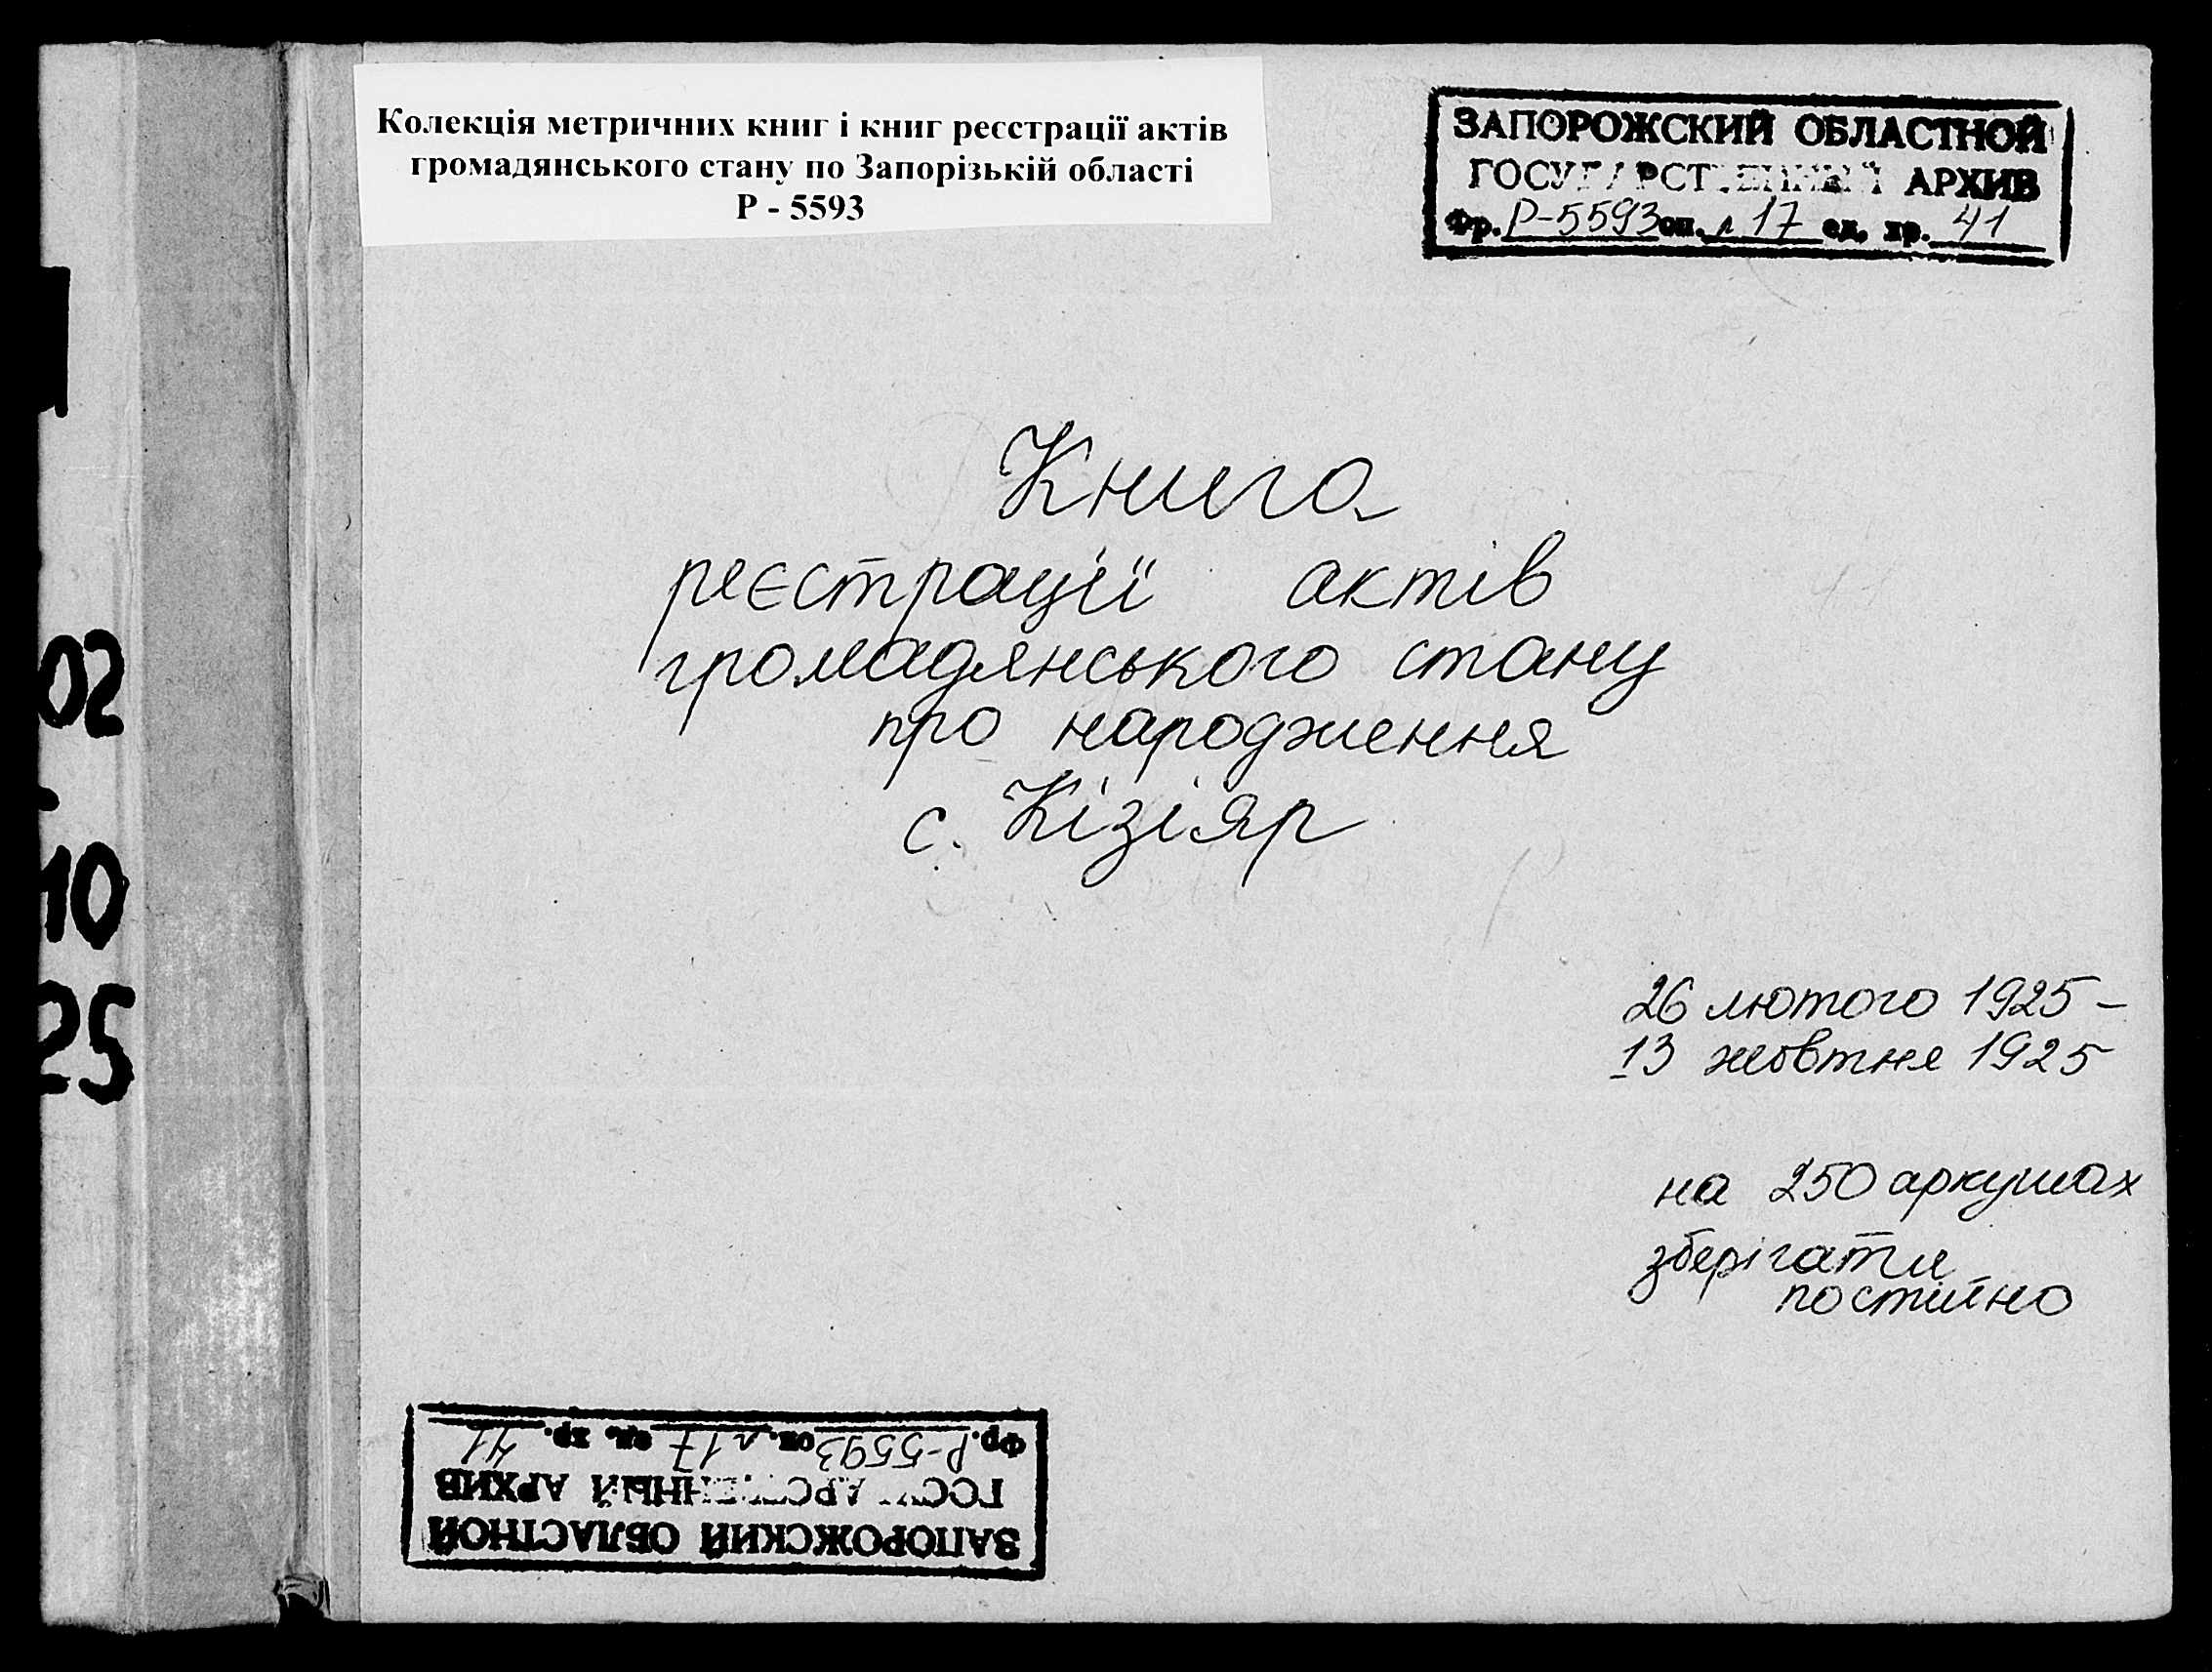 Колекція метричних книг і книг реєстрації актів
громадянського стану по Запорізькій області
Р - 5593
ЗАПОРОЖСКИЙ ОБЛАСТНОЙ
ГОСУДАРСТВЕННЫЙ АРХИВ
Фр. Р-5593 оп. л 17 ед. хр. 41
Книга
реєстрації актів
громадянського стану
про народження
с. Кізіяр
26 лютого 1925 –
13 жовтня 1925
на 250 аркушах
зберігати
постійно
02
-
10
25
ЗАПОРОЖСКИЙ ОБЛАСТНОЙ
ГОСУДАРСТВЕННЫЙ АРХИВ
Фр. Р-5593 оп. л 17 ед. хр. 41